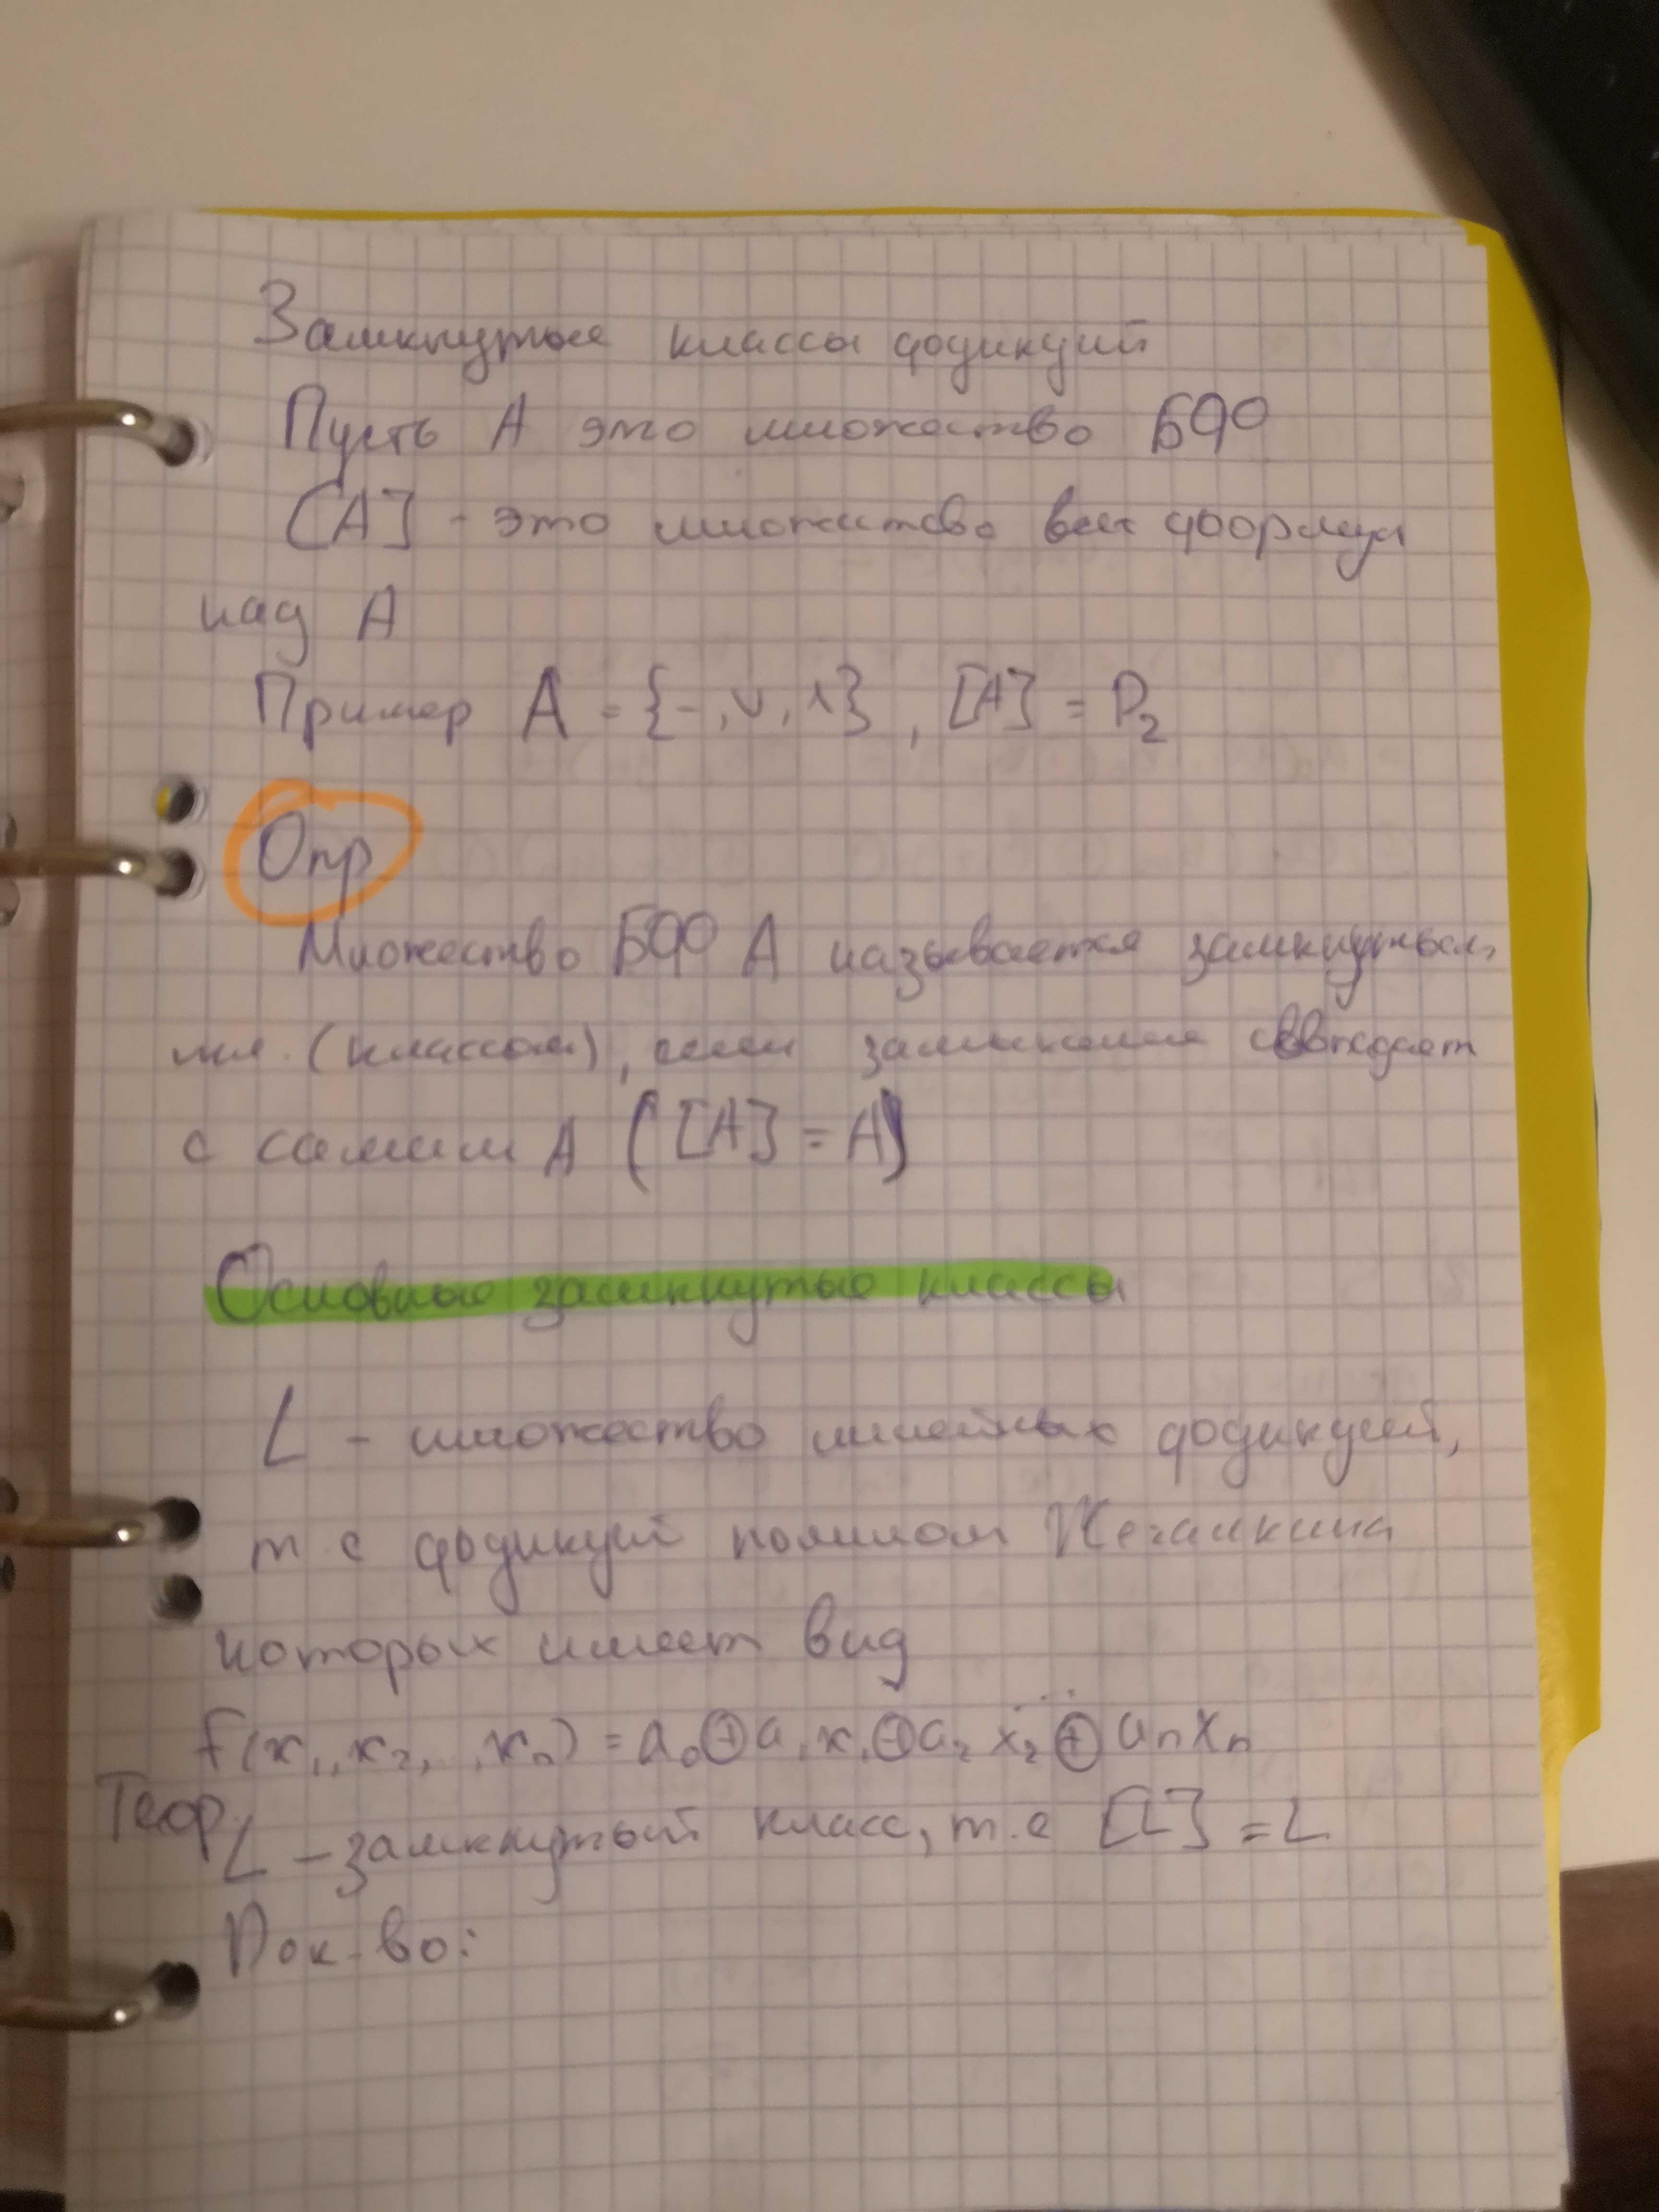 Замкнутые классы функций
Пусть A это множество БФ
[A] - это множество всех формул
над A
Пример A = {-, ∨, ∧}, [A] = P₂
Опр
Множество БФ A называется замкнутым
мн. (классом), если замыкание совпадает
с самим A ([A] = A)
Основные замкнутые классы
L - множество линейных функций,
т е функций полином Жегалкина
которых имеет вид
f(x₁, x₂, , xₙ) = a₀ ⊕ a₁x₁ ⊕ a₂x₂ ⊕ aₙxₙ
Теор L - замкнутый класс, т.е [L] = L
Док-во: